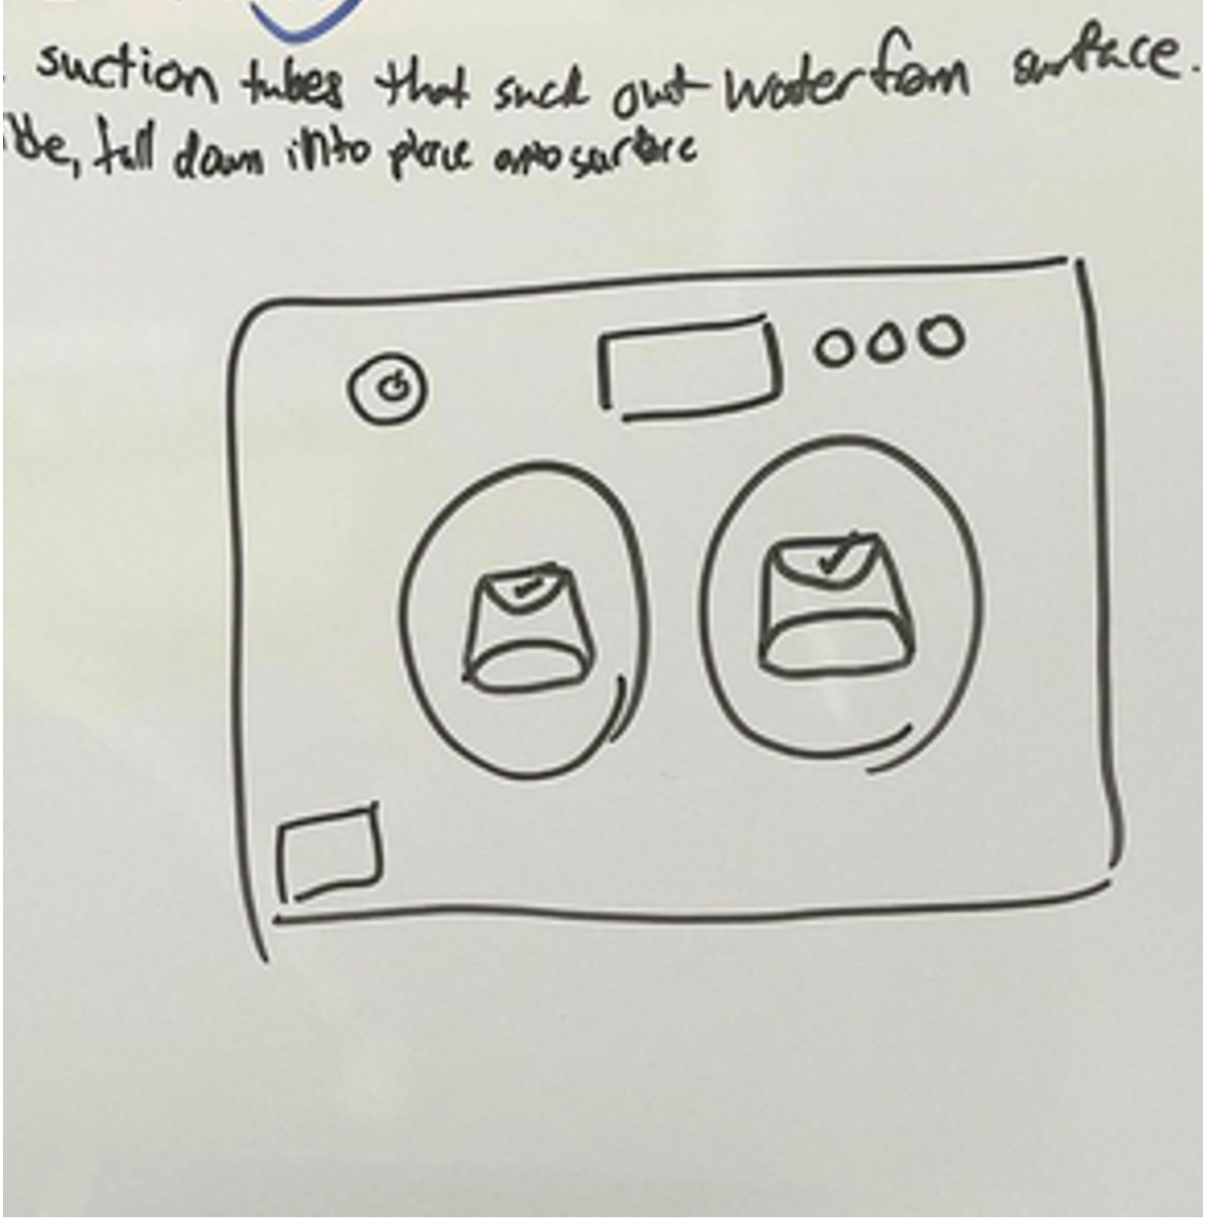 suction tubes that suck out water from surface.
fall down into place onto surface